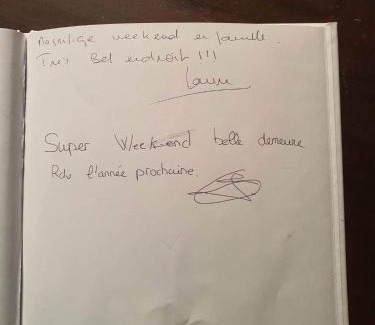 Magnifique weekend en famille.
Très Bel endroit !!!
Super Weekend belle demeure
Rdv l'année prochaine.